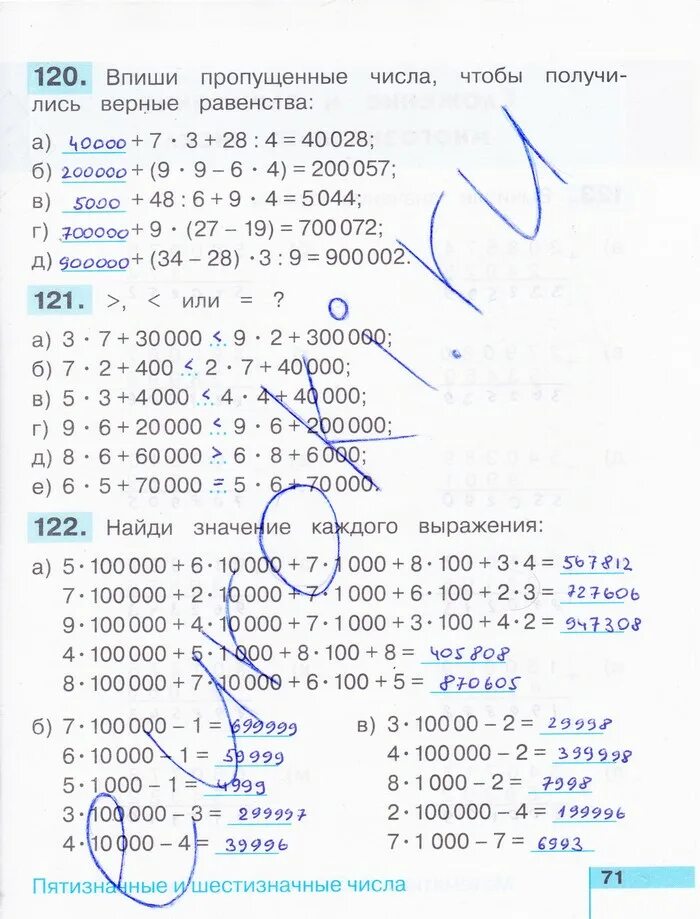 120. Впиши пропущенные числа, чтобы получи-
лись верные равенства:
а) 40000 + 7 · 3 + 28 : 4 = 40 028;
б) 200000 + (9 · 9 – 6 · 4) = 200 057;
в) 5000 + 48 : 6 + 9 · 4 = 5 044;
г) 700000 + 9 · (27 – 19) = 700 072;
д) 900000 + (34 – 28) · 3 : 9 = 900 002.
121. >, < или = ?
а) 3 · 7 + 30 000 < 9 · 2 + 300 000;
б) 7 · 2 + 400 < 2 · 7 + 40 000;
в) 5 · 3 + 4 000 < 4 · 4 + 40 000;
г) 9 · 6 + 20 000 < 9 · 6 + 200 000;
д) 8 · 6 + 60 000 > 6 · 8 + 6 000;
е) 6 · 5 + 70 000 = 5 · 6 + 70 000.
122. Найди значение каждого выражения:
а) 5 · 100 000 + 6 · 10 000 + 7 · 1 000 + 8 · 100 + 3 · 4 = 567812
7 · 100 000 + 2 · 10 000 + 7 · 1 000 + 6 · 100 + 2 · 3 = 727606
9 · 100 000 + 4 · 10 000 + 7 · 1 000 + 3 · 100 + 4 · 2 = 947308
4 · 100 000 + 5 · 1 000 + 8 · 100 + 8 = 405808
8 · 100 000 + 7 · 10 000 + 6 · 100 + 5 = 870605
б) 7 · 100 000 – 1 = 699999
6 · 10 000 – 1 = 59999
5 · 1 000 – 1 = 4999
3 · 100 000 – 3 = 299997
4 · 10 000 – 4 = 39996
в) 3 · 100 00 – 2 = 29998
4 · 100 000 – 2 = 399998
8 · 1 000 – 2 = 7998
2 · 100 000 – 4 = 199996
7 · 1 000 – 7 = 6993
Пятизначные и шестизначные числа
71